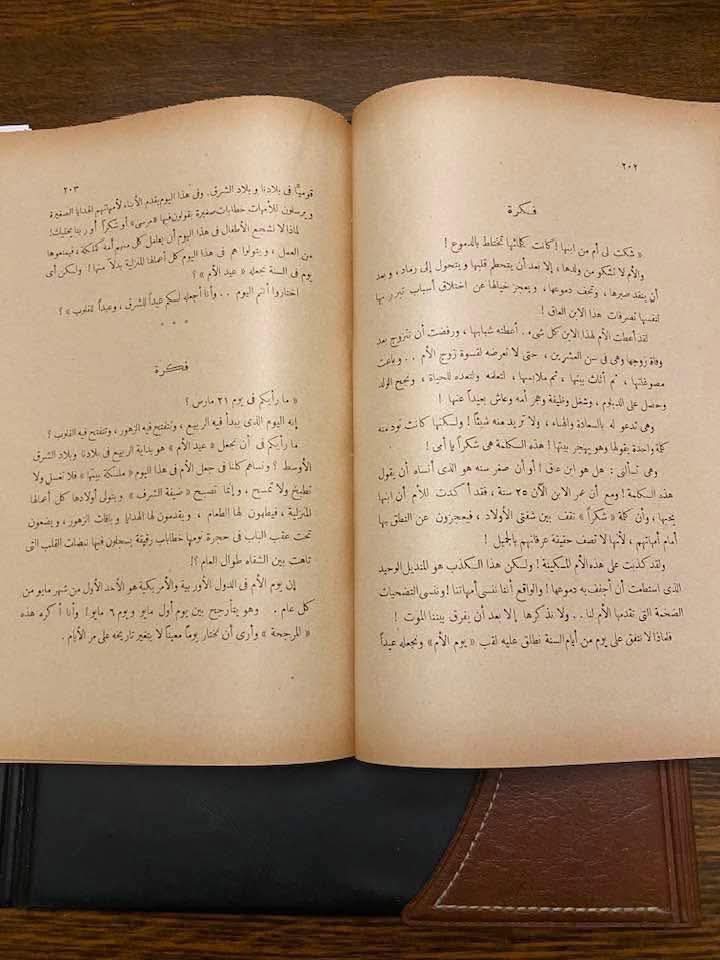 ٢٠٢
فكرة
« شكت لى أم من ابنها ! كانت كلماتها تختلط بالدموع !
والأم لا تشكو من ولدها ، إلا بعد أن يتحطم قلبها ويتحول إلى رماد ، وبعد
أن ينفد صبرها ، وتجف دموعها ، ويعجز خيالها عن اختلاق أسباب تبرر بها
لنفسها تصرفات هذا الابن العاق !
لقد أعطت الأم لهذا الابن كل شىء . أعطته شبابها ، ورفضت أن تتزوج بعد
وفاة زوجها وهى فى سن العشرين ، حتى لا تعرضه لقسوة زوج الأم . . وباعت
مصوغاتها ، ثم أثاث بيتها ، ثم ملابسها ، لتعلمه ولتعده للحياة ، ونجح الولد
وحصل على الدبلوم ، وشغل وظيفة وهجر أمه وعاش بعيداً عنها !
وهى تدعو له بالسعادة والهناء ، ولا تريد منه شيئاً ! ولكنها كانت تود منه
كلمة واحدة يقولها وهو يهجر بيتها ! هذه الكلمة هى شكراً يا أمى !
وهى تسألنى : هل هو ابن عاق ! أو أن صغر سنه هو الذى أنساه أن يقول
هذه الكلمة ! ومع أن عمر الابن الآن ٢٥ سنة ، فقد أكدت للأم أن ابنها
يحبها ، وأن كلمة « شكراً » تقف بين شفتى الأولاد ، فيعجزون عن النطق بها
أمام أمهاتهم ، لأنها لا تصف حقيقة عرفانهم بالجميل !
ولقد كذبت على هذه الأم المسكينة ! ولكن هذا الكذب هو المنديل الوحيد
الذى استطعت أن أجفف به دموعها ! والواقع أننا ننسى أمهاتنا ! وننسى التضحيات
الضخمة التى تقدمها الأم لنا . . ولا نذكرها إلا بعد أن يفرق بيننا الموت !
فلماذا لا نتفق على يوم من أيام السنة نطلق عليه لقب « يوم الأم » ونجعله عيداً
٢٠٣
قومياً فى بلادنا وبلاد الشرق . وفى هذا اليوم يقدم الأبناء لأمهاتهم الهدايا الصغيرة
ويرسلون للأمهات خطابات صغيرة يقولون فيها « مرسى » أو شكراً أو ربنا يخليك !
لماذا لا نشجع الأطفال فى هذا اليوم أن يعامل كل منهم أمه كملكة ، فيمنعوها
من العمل ، ويتولوا هم فى هذا اليوم كل أعمالها المنزلية بدلاً منها ! ولكن أى
يوم فى السنة نجعله « عيد الأم » ؟
اختاروا أنتم اليوم . . وأنا أجعله لكم عيداً للشرق ، وعيداً للقلوب » ؟
* * *
فكرة
« ما رأيكم فى يوم ٢١ مارس ؟
إنه اليوم الذى يبدأ فيه الربيع ، وتتفتح فيه الزهور ، وتتفتح فيه القلوب ؟
ما رأيكم فى أن نجعل « عيد الأم » هو بداية الربيع فى بلادنا وبلاد الشرق
الأوسط ؟ ونساهم كلنا فى جعل الأم فى هذا اليوم « ملكة بيتها » فلا تغسل ولا
تطبخ ولا تمسح ، وإنما تصبح « ضيفة الشرف » ويتولى أولادها كل أعمالها
المنزلية ، فيطهون لها الطعام ، ويقدمون لها الهدايا وباقات الزهور ، ويضعون
تحت عقب الباب فى حجرة نومها خطابات رقيقة يسجلون فيها نبضات القلب التى
تاهت بين الشفاه طوال العام ؟ !
إن يوم الأم فى الدول الأوربية والأمريكية هو الأحد الأول من شهر مايو من
كل عام . وهو يتأرجح بين يوم أول مايو ويوم ٦ مايو ! وأنا أكره هذه
« المرجحة » وأرى أن نختار يوماً معيناً لا يتغير تاريخه على مر الأيام .